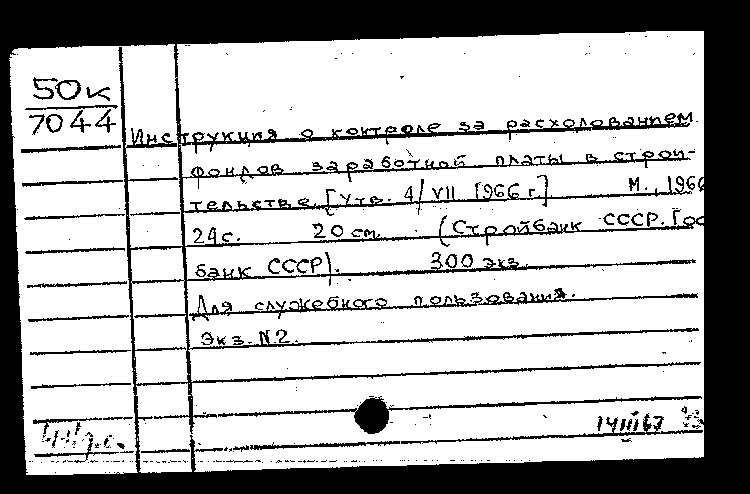 50к
7044
Инструкция о контроле за расходованием
фондов заработной платы в строи-
тельстве. [Утв. 4/VII 1966 г.] М., 1966
24с. 20 см. (Стройбанк СССР. Гос
банк СССР). 300 экз.
Для служебного пользования.
Экз. N2.
14III67